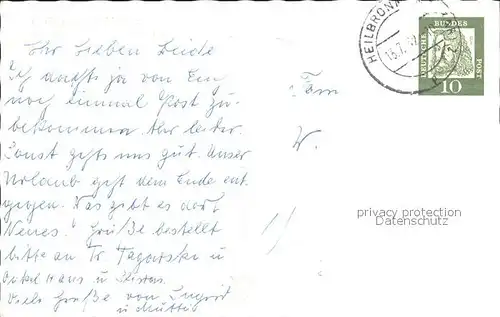 Ihr Lieben Beide
Ich dachte ja von Euch
noch einmal Post zu
bekommen aber leider.
Sonst gehts uns gut. Unser
Urlaub geht dem Ende ent
gegen. Was gibt es dort
Neues? Grüße bestellt
bitte an Fr. u
Onkel Hans u
Viele Grüße von Ingrid
u Mutti
Fam
W.
HEILBRONN
DEUTSCHE BUNDES POST
10
privacy protection
Datenschutz